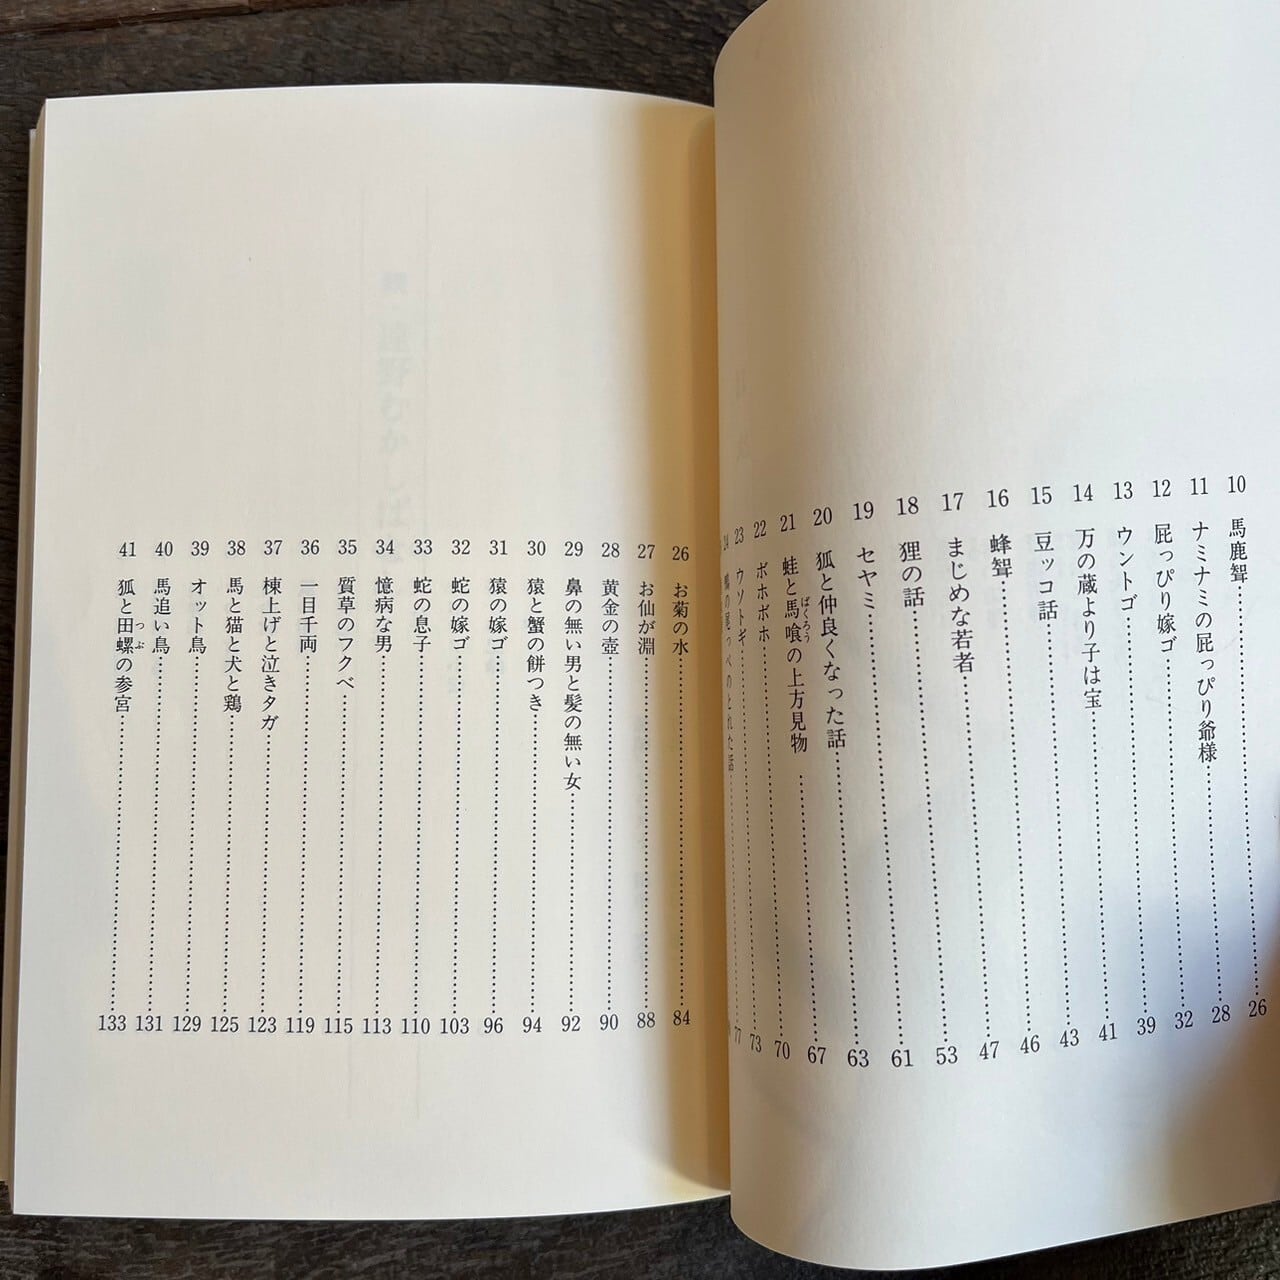 10 馬鹿聟……26
11 ナミナミの屁っぴり爺様……28
12 屁っぴり嫁ゴ……32
13 ウントゴ……39
14 万の蔵より子は宝……41
15 豆ッコ話……43
16 蜂聟……46
17 まじめな若者……47
18 狸の話……53
19 セヤミ……61
20 狐と仲良くなった話……63
21 蛙と馬喰の上方見物……67
ばくろう
22 ボホボホ……70
23 ウソトギ……73
24 の尾っぺのとれた話……77
26 お菊の水……84
27 お仙が淵……88
28 黄金の壺……90
29 鼻の無い男と髪の無い女……92
30 猿と蟹の餅つき……94
31 猿の嫁ゴ……96
32 蛇の嫁ゴ……103
33 蛇の息子……110
34 憶病な男……113
35 質草のフクベ……115
36 一目千両……119
37 棟上げと泣きタガ……123
38 馬と猫と犬と鶏……125
39 オット鳥……129
40 馬追い鳥……131
41 狐と田螺の参宮……133
つぶ